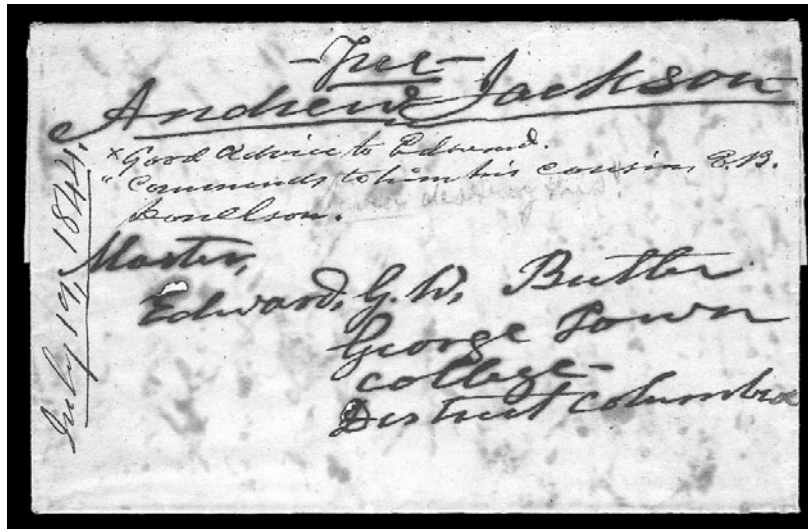 -Free-
Andrew Jackson
× Good Advice to Edward.
" Commends to him his cousin, E.B.
Donelson.
Never destroy this
Master,
Edward, G. W, Butler
George Town
college-
District Columbia
July 19, 1844.